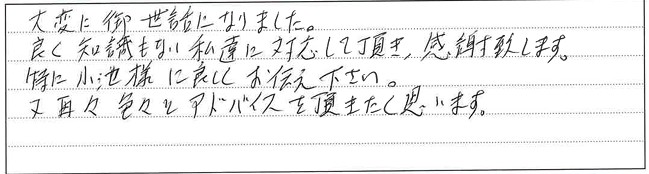 大変に御世話になりました。
良く知識もない私達に対応して頂き、感謝致します。
特に小池様に良しくお伝え下さい。
又再々色々とアドバイスを頂きたく思います。